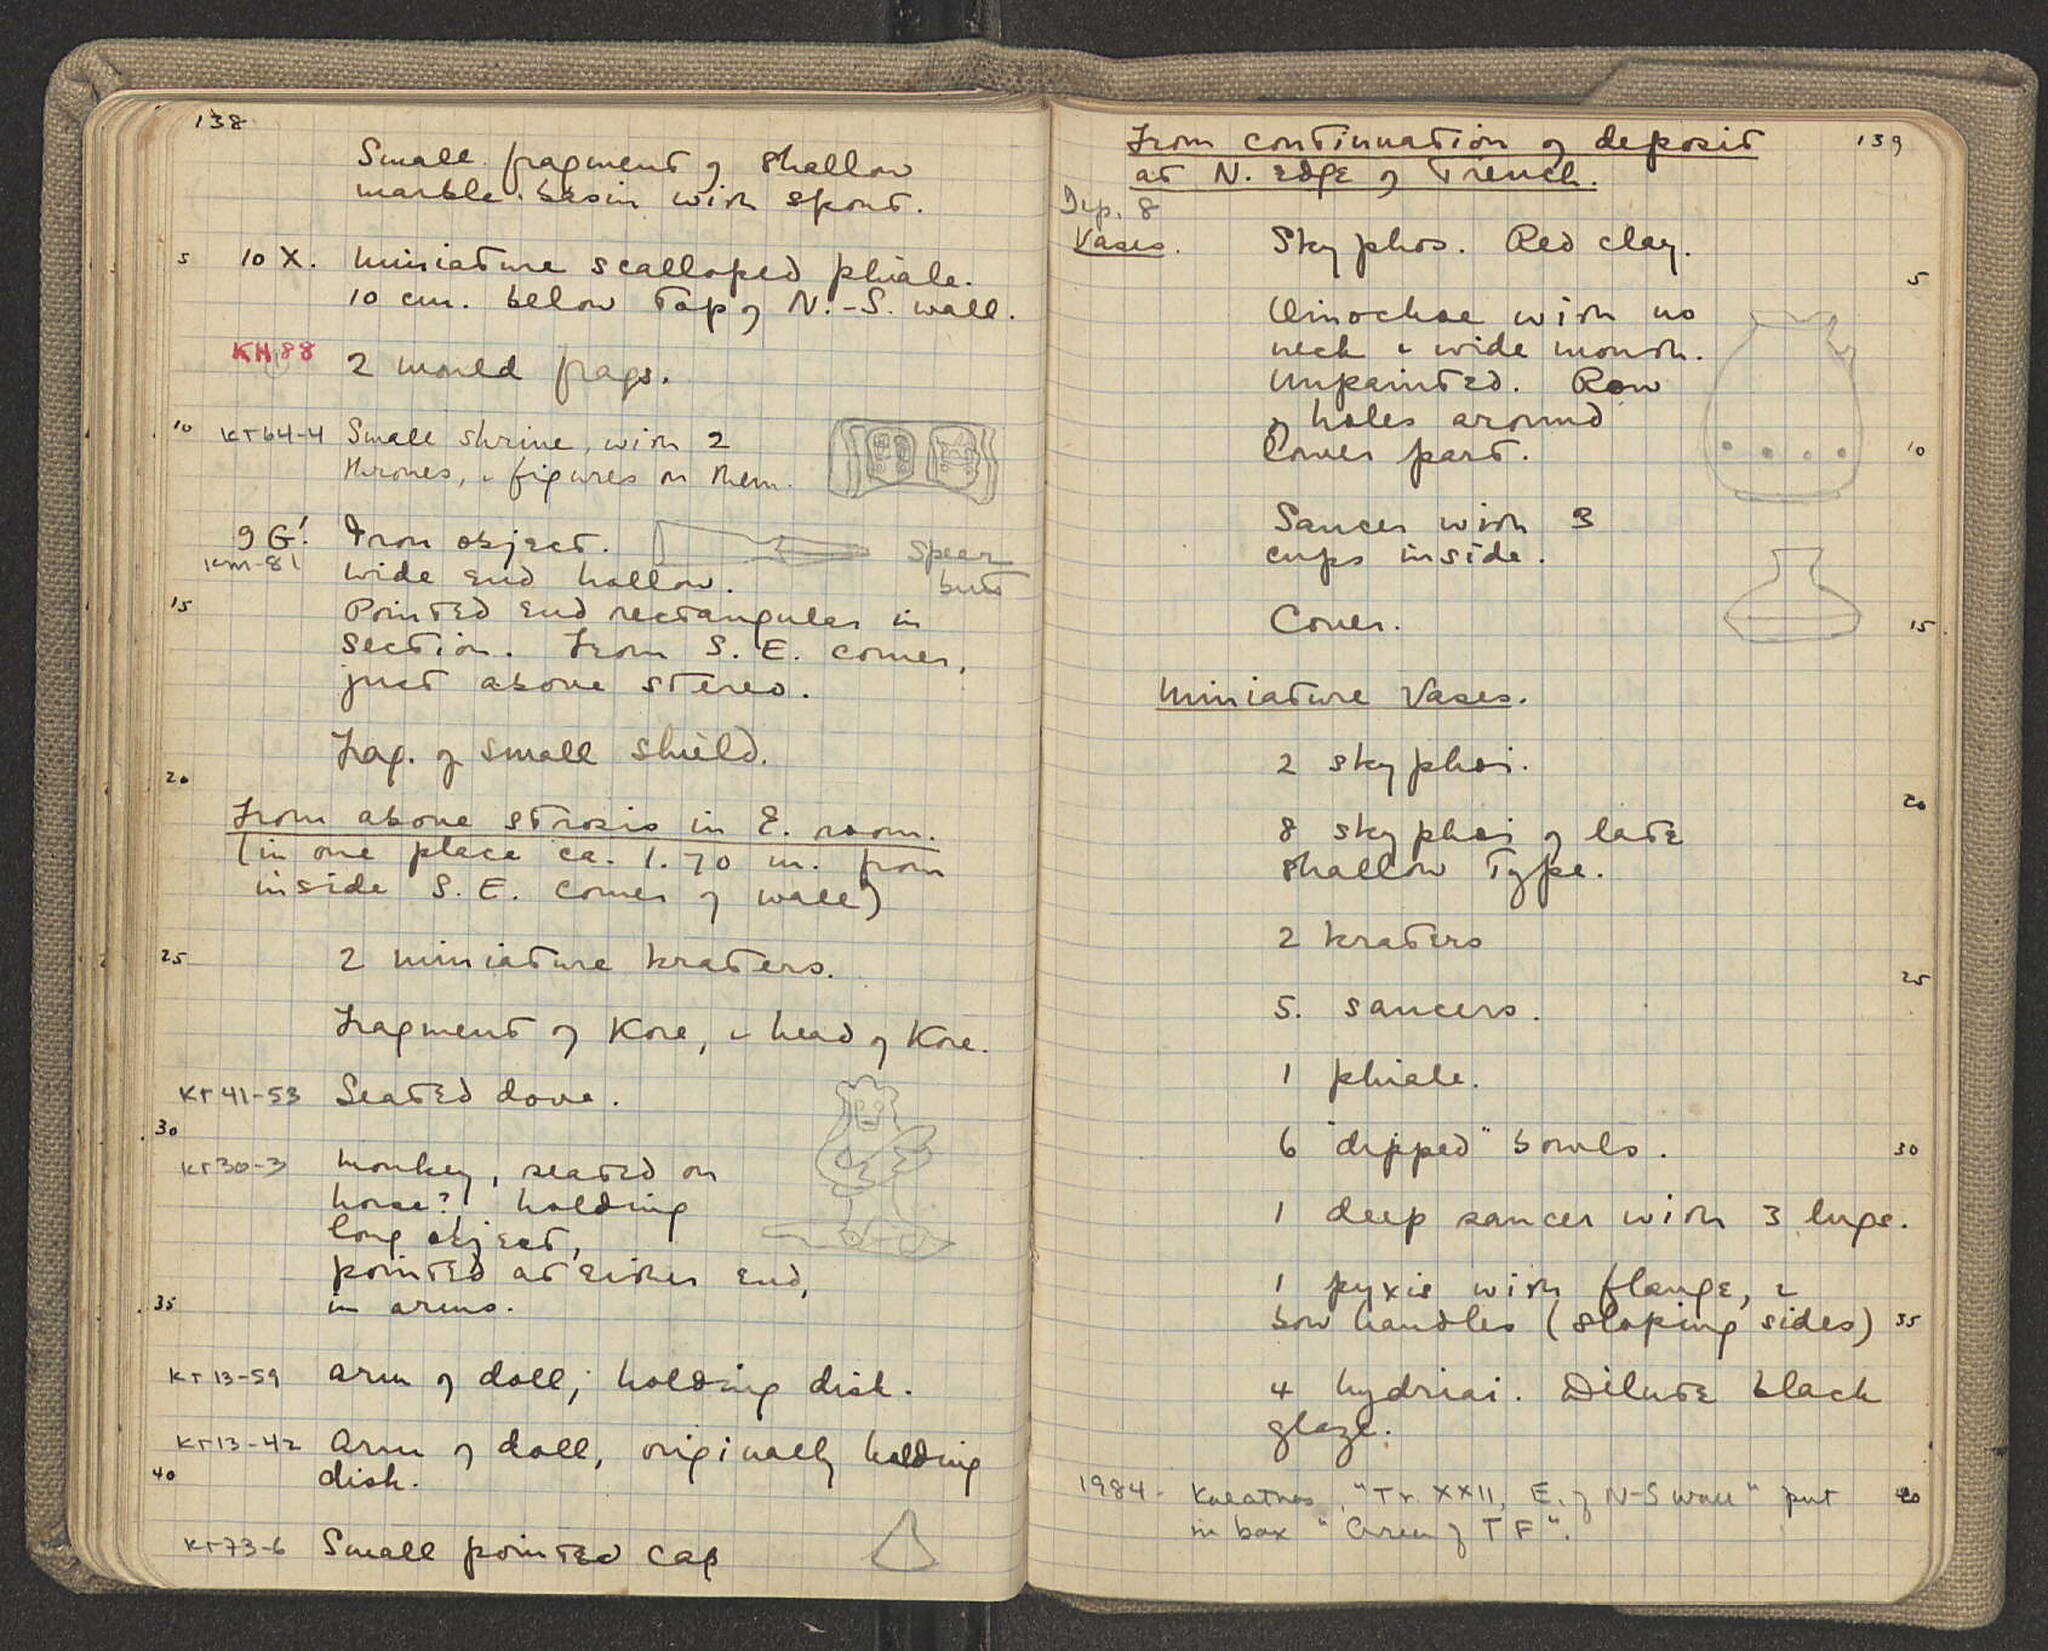 138
Small fragment of shallow
marble basin with spout.
5 10 X. Miniature scalloped phiale.
10 cm. below top of N.-S. wall.
KH 88 2 mould frags.
10 KT64-4 Small shrine, with 2
thrones, & figures on them.
9 G! Iron object. Spear
KM-81 wide end hollow. butt
15 Pointed end rectangular in
section. From S. E. corner,
just above stereo.
Frag. of small shield.
20
From above strosis in E. room.
(in one place ca. 1.70 m. from
inside S. E. corner of wall)
25 2 miniature kraters.
Fragment of Kore, & head of Kore.
KT41-53 Seated dove.
30
KT30-3 Monkey, seated on
horse?, holding
long object,
pointed at either end,
35 in arms.
KT13-59 Arm of doll; holding disk.
KT13-42 Arm of doll, originally holding
40 disk.
KT73-6 Small pointed cap
139
From continuation of deposit
at N. edge of Trench.
Dep. 8
Vases. Skyphos. Red clay.
5
Oinochoe with no
neck & wide mouth.
Unpainted. Row
of holes around
lower part. 10
Saucer with 3
cups inside.
Cover. 15
Miniature Vases.
2 skyphoi.
20
8 skyphoi of late
shallow type.
2 kraters
25
5. saucers.
1 phiale.
6 "dipped" bowls. 30
1 deep saucer with 3 lugs.
1 pyxis with flange, &
bow handles (sloping sides) 35
4 hydriai. Dilute black
glaze.
1984 - Kalathos, "Tr. XXII, E. of N-S wall" put 40
in box "Area of TF".